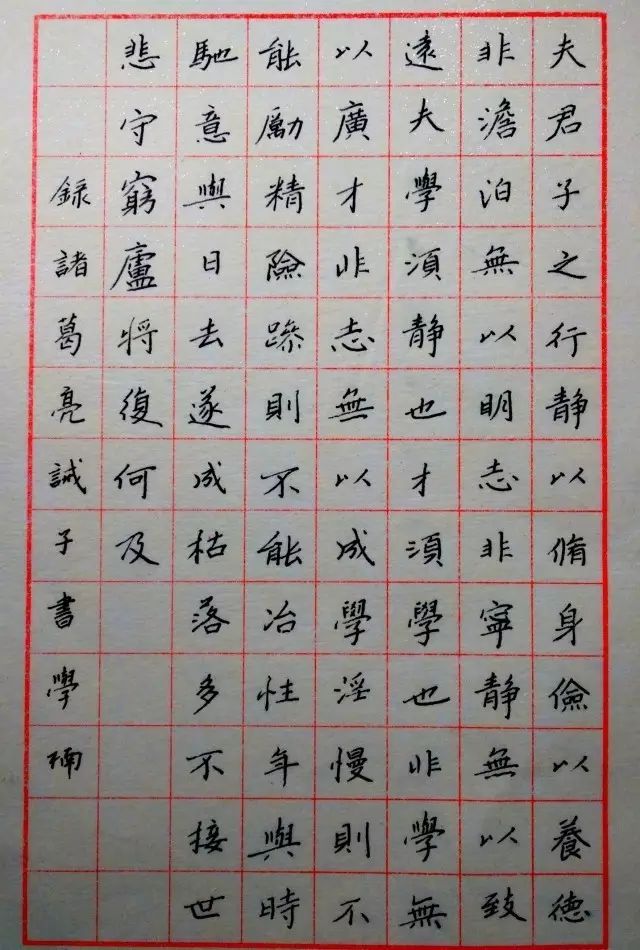 夫君子之行静以脩身儉以養德
非澹泊無以明志非寧静無以致
遠夫學須静也才須學也非學無
以廣才非志無以成學淫慢則不
能勵精險躁則不能冶性年與時
馳意與日去遂成枯落多不接世
悲守窮廬將復何及
録諸葛亮誡子書學楠